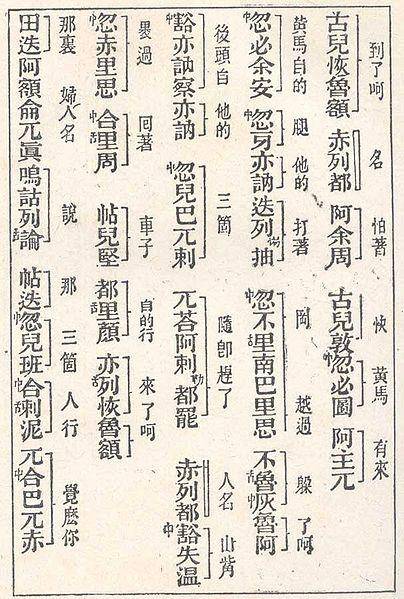 到了呵 名 怕著 快 黃馬 有來
古兒恢魯額 赤列都 阿余周 古兒敦中忽必圖 阿主兀
黃馬自的 腿 他的 打著 岡 越過 躱 了呵
中忽必余安 中忽牙亦訥 迭列抽 中忽不里南巴里思 不舌魯中灰 阿
後頭自 他的 三箇 隨卽趕了 人名 山嘴
中豁亦訥察亦訥 中忽兒巴兀剌 兀荅阿剌勒都罷 赤列都中豁失溫
曡過 囘著 車子 自的行 來了呵
中忽赤里思 中合舌里周 帖兒堅 都舌里顏 亦舌列恢魯額
那裏 婦人名 說 那 三箇 人行 覺麽你
田迭阿額侖兀眞嗚詁列舌論 帖迭中忽兒班中合舌剌泥 兀中合巴兀赤